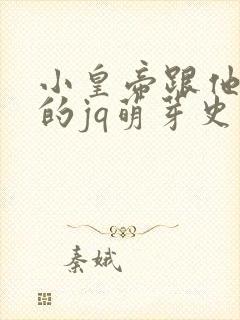 小皇帝跟他
的jq萌芽史
秦娥